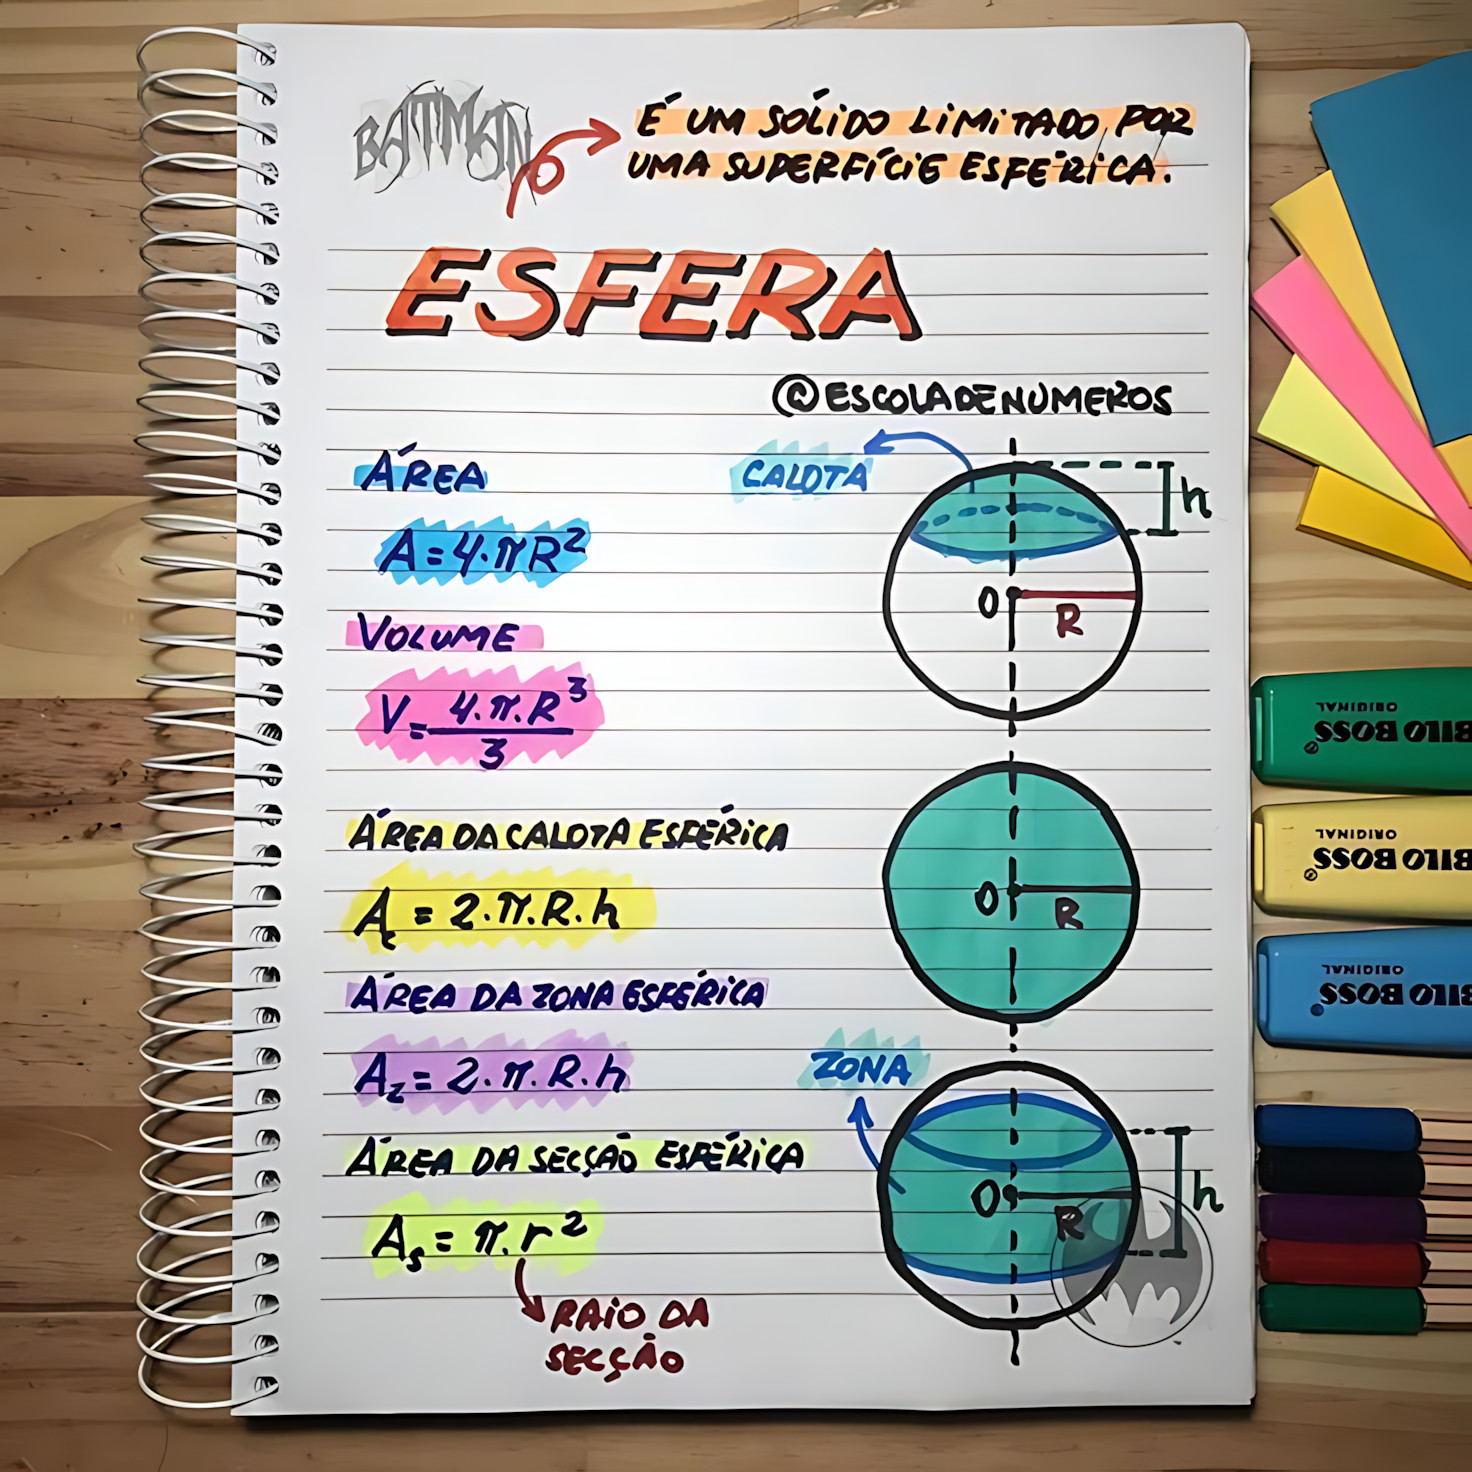 BATMAN
É UM SÓLIDO LIMITADO POR
UMA SUPERFÍCIE ESFÉRICA.
ESFERA
@ESCOLADENÚMEROS
ÁREA
CALOTA
h
A = 4·πR²
O
R
VOLUME
V = 4.π.R³
3
ÁREA DA CALOTA ESFÉRICA
Ac = 2.π.R.h
O
R
ÁREA DA ZONA ESFÉRICA
Az = 2.π.R.h
ZONA
ÁREA DA SECÇÃO ESFÉRICA
O
R
h
As = π.r²
RAIO DA
SECÇÃO
BILO BOSS
ORIGINAL
BILO BOSS
ORIGINAL
BILO BOSS
ORIGINAL